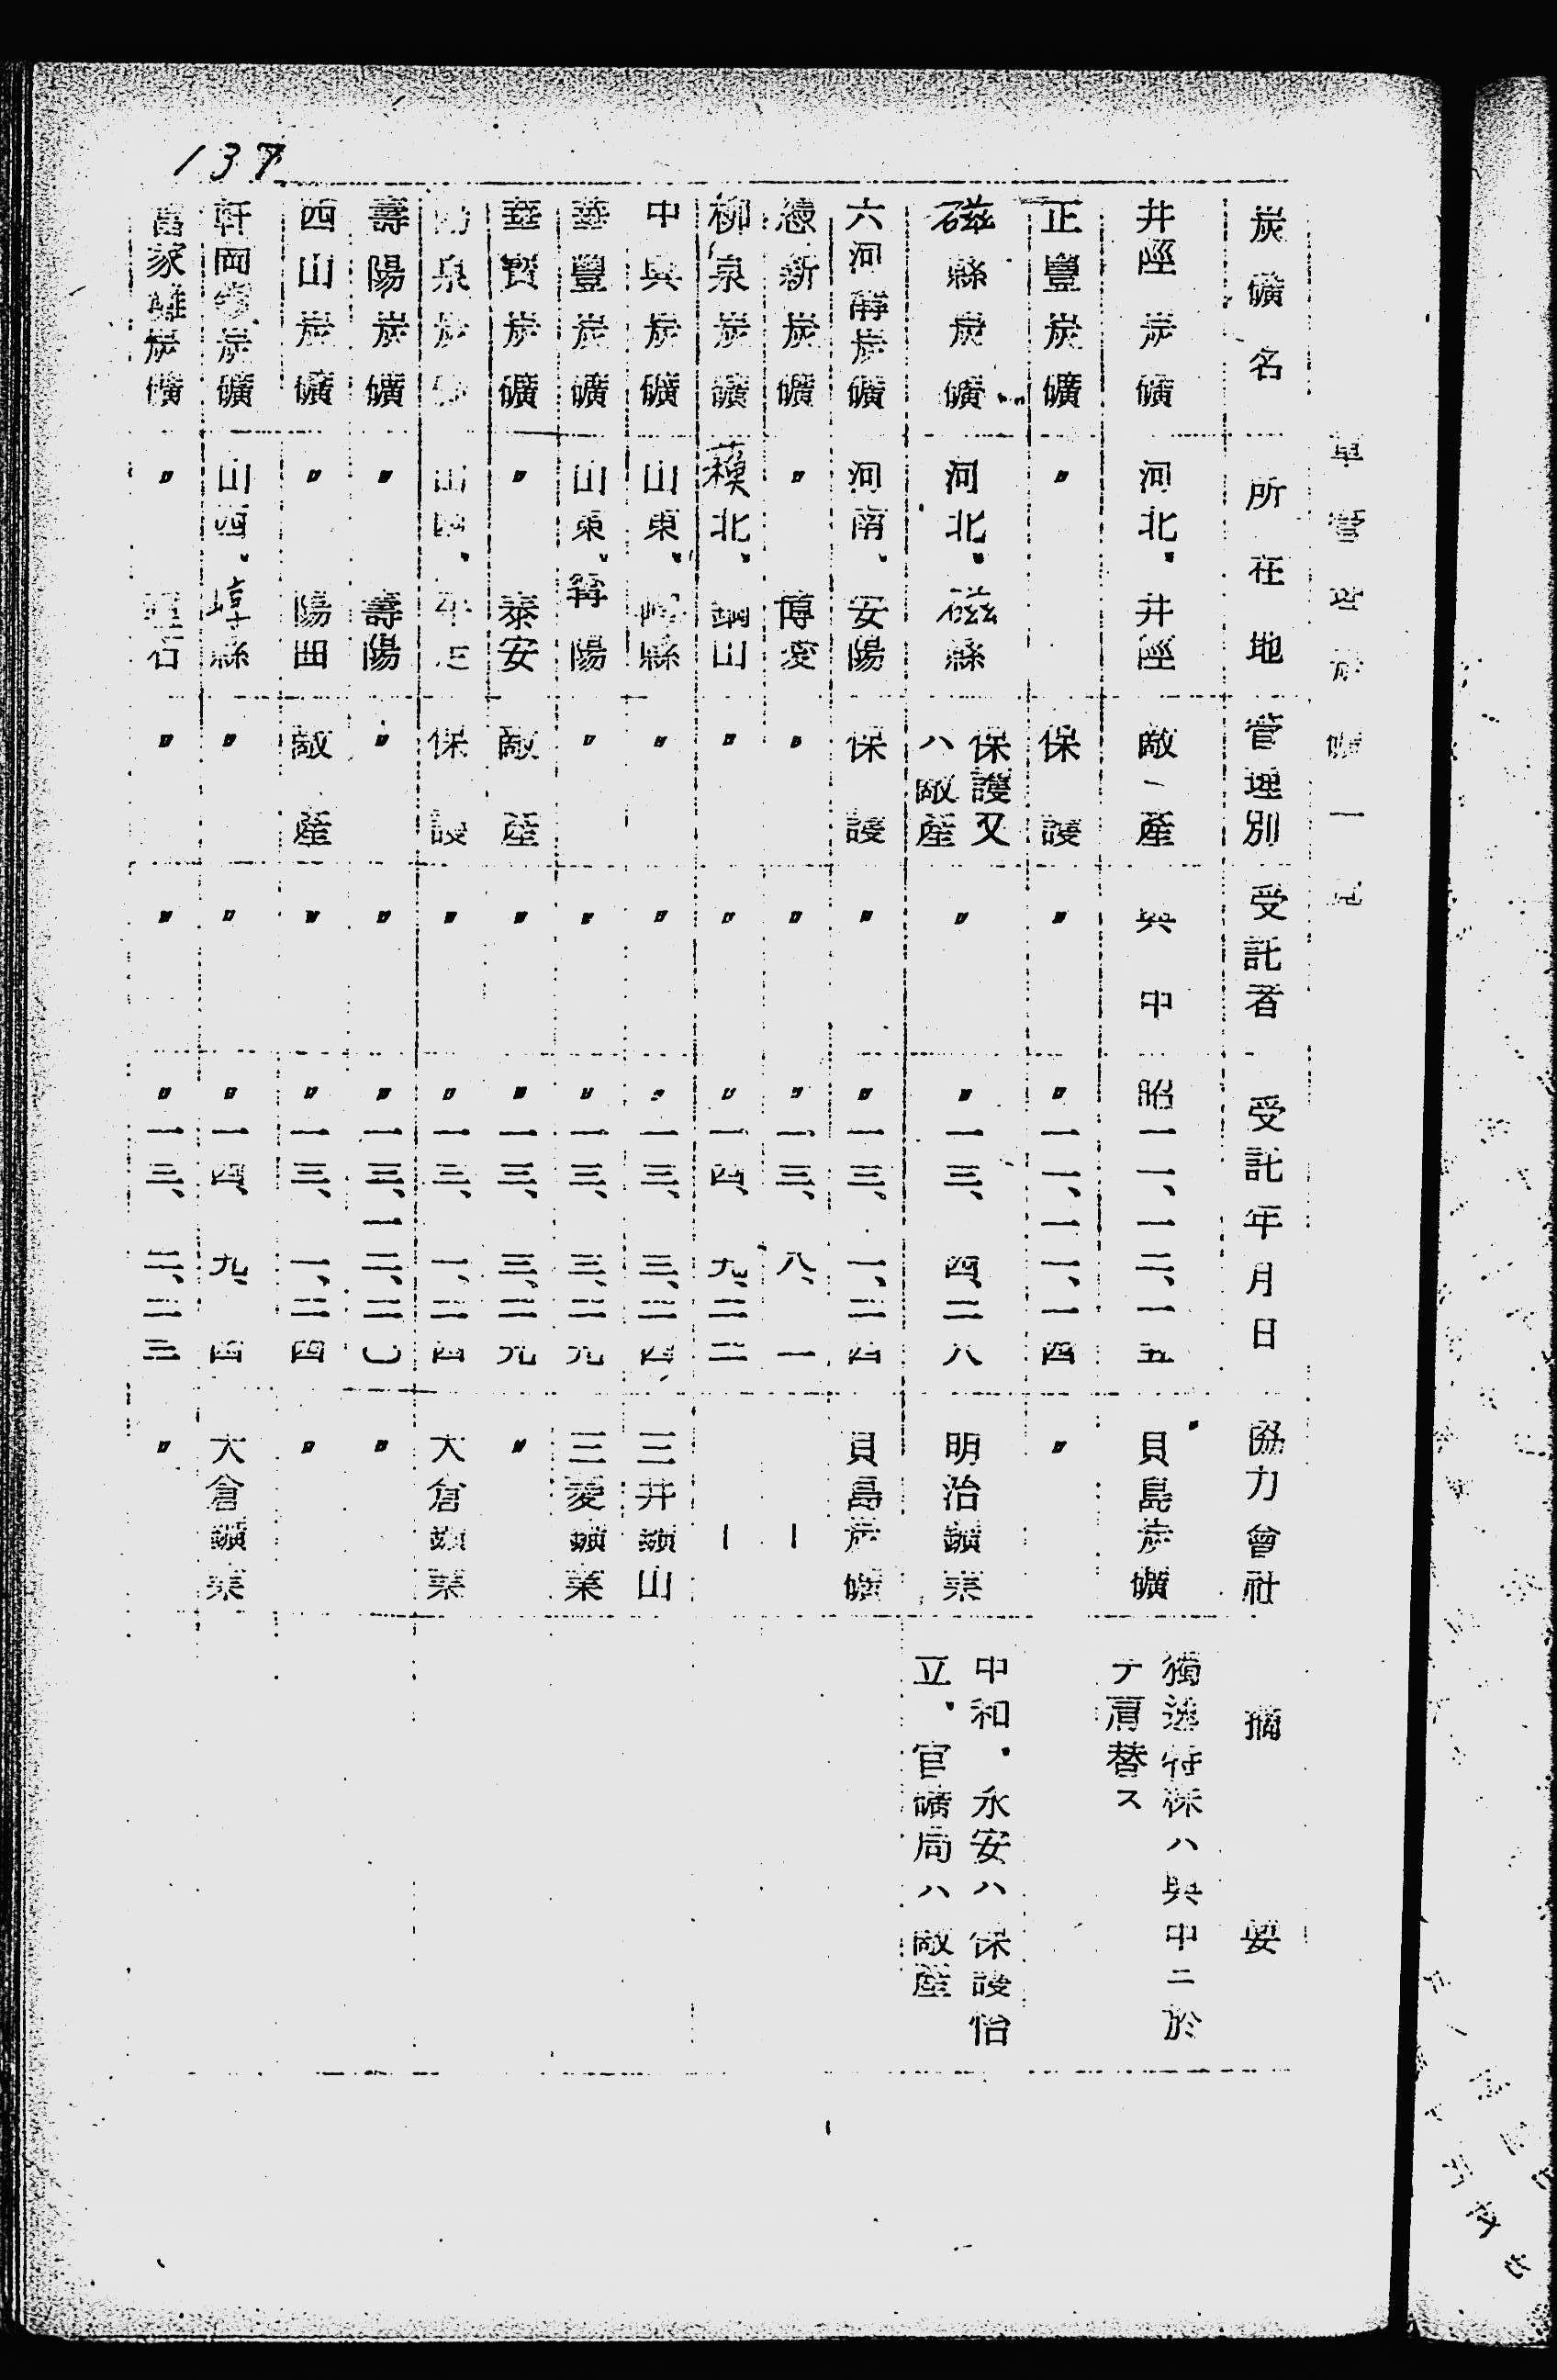 137
軍管理炭礦一覧
炭礦名 所在地 管理別 受託者 受託年月日 協力會社 摘要
井陘炭礦 河北、井陘 敵産 興中 昭一一、一二、一五 貝島炭礦 獨逸持株ハ興中ニ於
テ肩替ス
正豐炭礦 〃 保護 〃 〃一一、一一、一四 〃
磁縣炭礦 河北、磁縣 保護又
ハ敵産 〃 〃一三、四、二八 明治鑛業 中和、永安ハ保護怡
立、官礦局ハ敵産
六河溝炭礦 河南、安陽 保護 〃 〃一三、一、二四 貝島炭礦
新炭礦 〃 博愛 〃 〃 〃一三、八、一 ー
柳泉炭礦 北、銅山 〃 〃 〃一四、九、二二 ー
中興炭礦 山東、嶧縣 〃 〃 〃一三、三、二四 三井鑛山
華豐炭礦 山東、甯陽 〃 〃 〃一三、三、二九 三菱鑛業
華寶炭礦 〃 泰安 敵産 〃 〃一三、三、二九 〃
陽泉炭礦 山西、平定 保護 〃 〃一三、一、二四 大倉鑛業
壽陽炭礦 〃 壽陽 〃 〃 〃一三、一二、二〇 〃
西山炭礦 〃 陽曲 敵産 〃 〃一三、一、二四 〃
軒崗炭礦 山西、崞縣 〃 〃 〃一四、九、四 大倉鑛業
富家灘炭礦 〃 靈石 〃 〃 〃一三、二、二三 〃